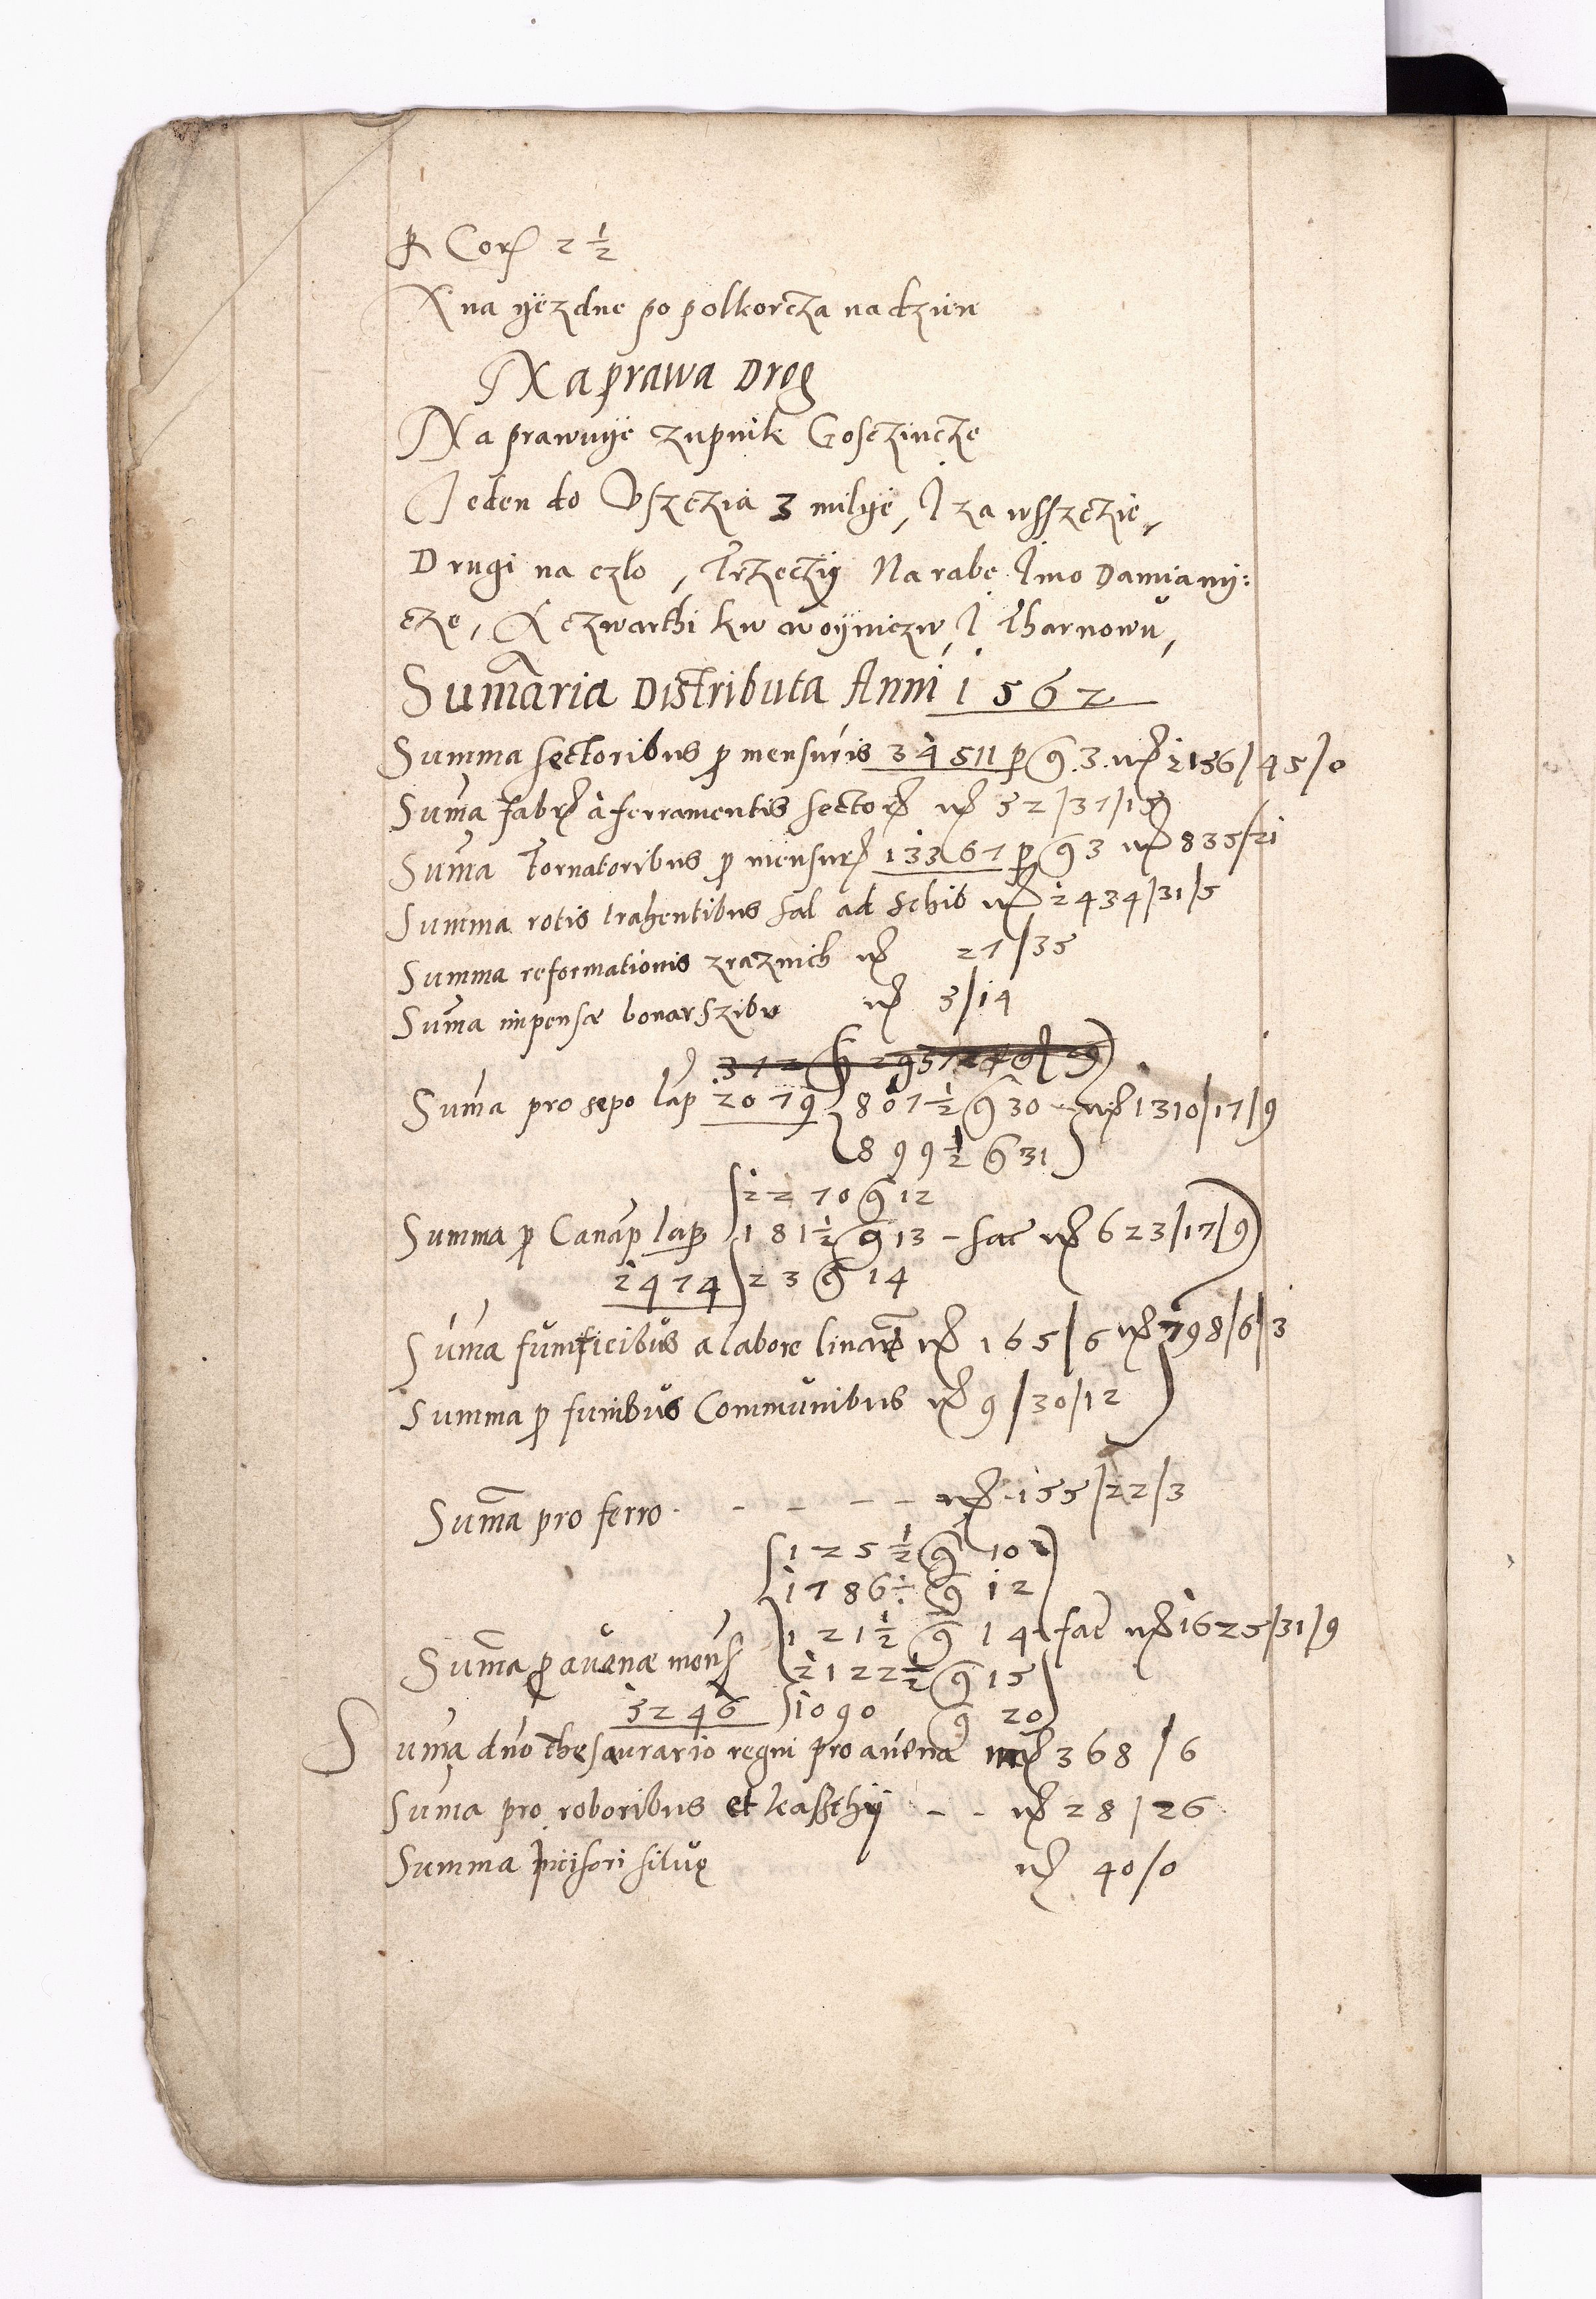 ꝑ Cor 2 ½
A na yezdne po polkorcza na dzien
Naprawa Drog
Naprawuye zupnik Gosczincze
Jeden do Uszczia 3 milye, J za wsszczie,
Drugi na czlo, Trzeczy Na rabe Imo Damiany:
cze, A czwarthi kw woyniczw, J Tharnowu,
Sumaria Distributa Anni 1562
Summa sectoribus p mensuris 34511 p g 3 mr 2156/45/0
Suma fabr a ferramentis sector mr 52/37/15
Suma Tornatoribus p mensur 13367 p g 3 mr 835/21
Summa rotis trahentibus sal ad schib mr 2434/31/5
Summa reformationis zraznich mr 27/35
Suma impensæ bonarszibu mr 3/14
Suma pro sepo lap 2079 807½ g 30 mr 1310/17/9
899½ g 31
2270 g 12
Summa p Canap lap 181½ g 13 - fac mr 623/17/9
2474 23 g 14
Suma funificibus a labore linar mr 165/6 mr 798/6/3
Summa p funibus Communibus mr 9/30/12
Suma pro ferro - - - - mr 155/22/3
125½ g 10
1786 g 12
121½ g 14 fac mr 1625/31/9
Suma p avenæ mens 2122½ g 15
5246 1090 g 20
Suma dno thesaurario regni pro avena mr 368/6
Suma pro roboribus et kaszthy - - mr 28/26
Summa incisori silvę mr 40/0